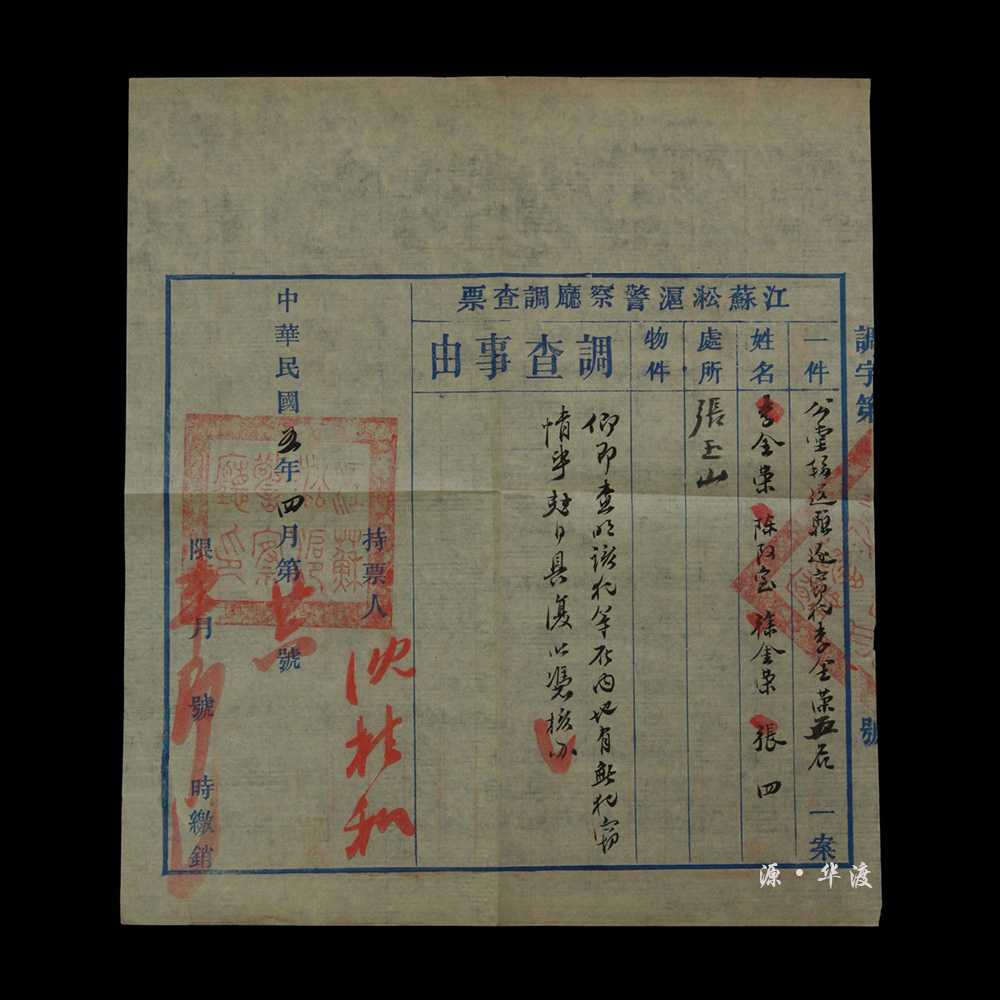 調字第 號
江蘇淞滬警察廳調查票
一件 公堂移送驅逐竊犯李金榮五名 一案
姓名 李金榮 陳阿宝 徐金榮 張四
處所 張玉山
物件
調查事由
仰即查明該犯等在內地有無犯竊
情事尅日具復以憑核办
持票人 沈桂和
中華民國五年四月第 號
限 月 號 時繳銷
江蘇淞滬警察廳印
源·华渡